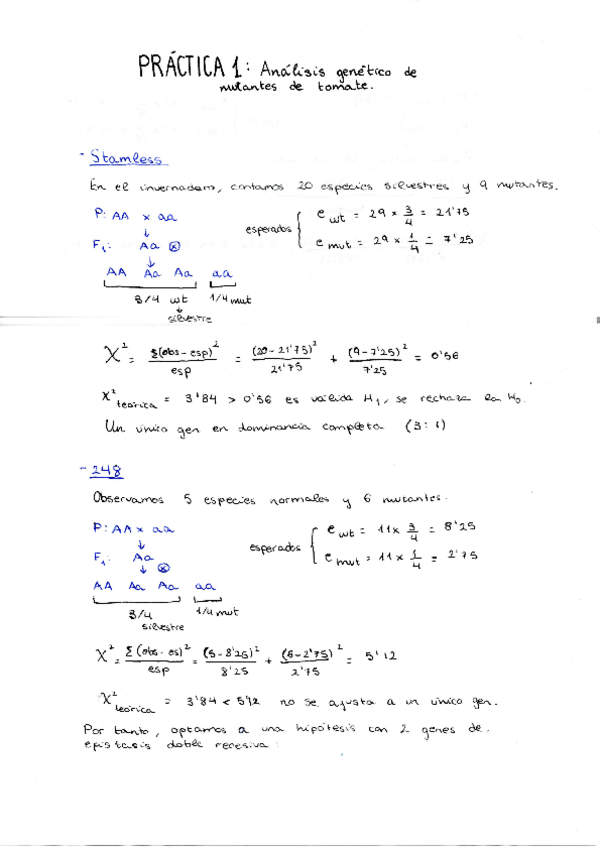 PRÁCTICA 1: Análisis genético de
mutantes de tomate.
- Stamless
En el invernadero, contamos 20 especies silvestres y 9 mutantes.
P: AA x aa
F1: Aa ⊗
AA Aa Aa aa
3/4 wt 1/4 mut
silvestre
esperados { e wt = 29 x 3/4 = 21'75
e mut = 29 x 1/4 = 7'25
χ² = Σ(obs-esp)²/esp = (20-21'75)²/21'75 + (9-7'25)²/7'25 = 0'56
χ² teórica = 3'84 > 0'56 es válida H1, se rechaza la H0.
Un único gen en dominancia completa (3:1)
- 248
Observamos 5 especies normales y 6 mutantes.
P: AA x aa
F1: Aa
⊗
AA Aa Aa aa
3/4 1/4 mut
silvestre
esperados { e wt = 11x 3/4 = 8'25
e mut = 11x 1/4 = 2'75
χ² = Σ(obs-es)²/esp = (5-8'25)²/8'25 + (6-2'75)²/2'75 = 5'12
χ² teórica = 3'84 < 5'12 no se ajusta a un único gen.
Por tanto, optamos a una hipótesis con 2 genes de
epistasis doble recesiva: